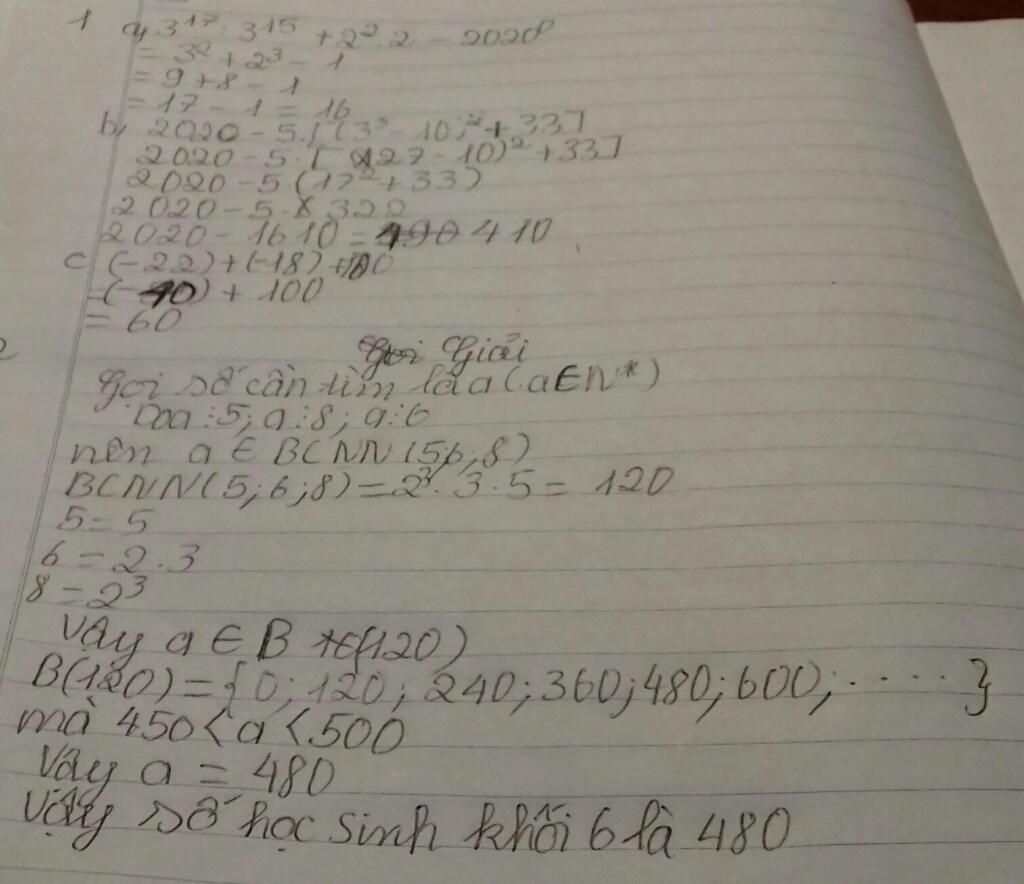 1 a, 3¹⁷: 3¹⁵ + 2². 2 - 2020⁰
= 3² + 2³ - 1
= 9 + 8 - 1
= 17 - 1 = 16
b, 2020 - 5.[(3³ - 10)² + 33]
2020 - 5.[(27 - 10)² + 33]
2020 - 5.(17² + 33)
2020 - 5. 322
2020 - 1610 = 410
c (-22) + (-18) + 100
=(-40) + 100
= 60
2 Giải
gọi số cần tìm là a (a ∈ N*)
a ⋮ 5; a ⋮ 8; a ⋮ 6
nên a ∈ BCNN(5,6;8)
BCNN(5;6;8) = 2³. 3. 5 = 120
5 = 5
6 = 2.3
8 = 2³
Vậy a ∈ B (120)
B(120) = {0; 120; 240; 360; 480; 600; ..... }
mà 450 < a < 500
Vậy a = 480
Vậy số học sinh khối 6 là 480